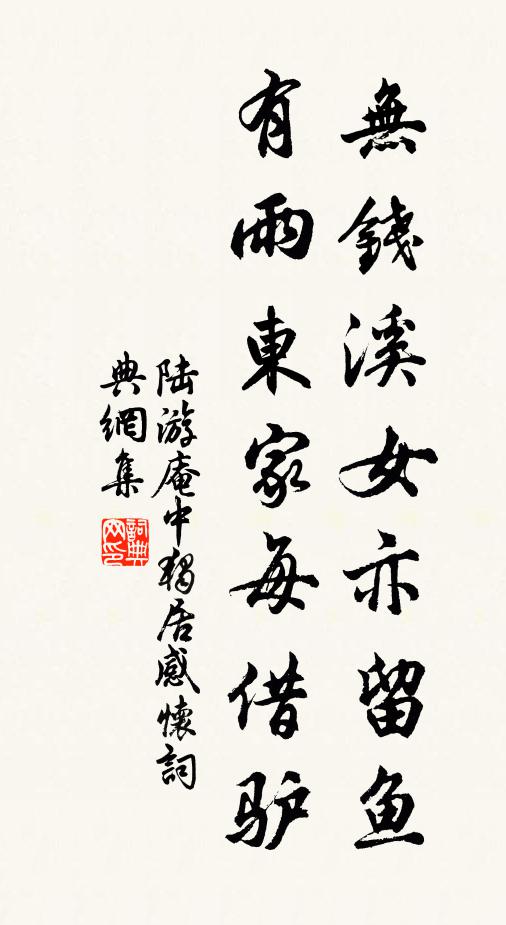 無錢溪女亦留鱼
有雨東家每借驴
陆游庵中獨居感懷詞
典網集
詞典網印